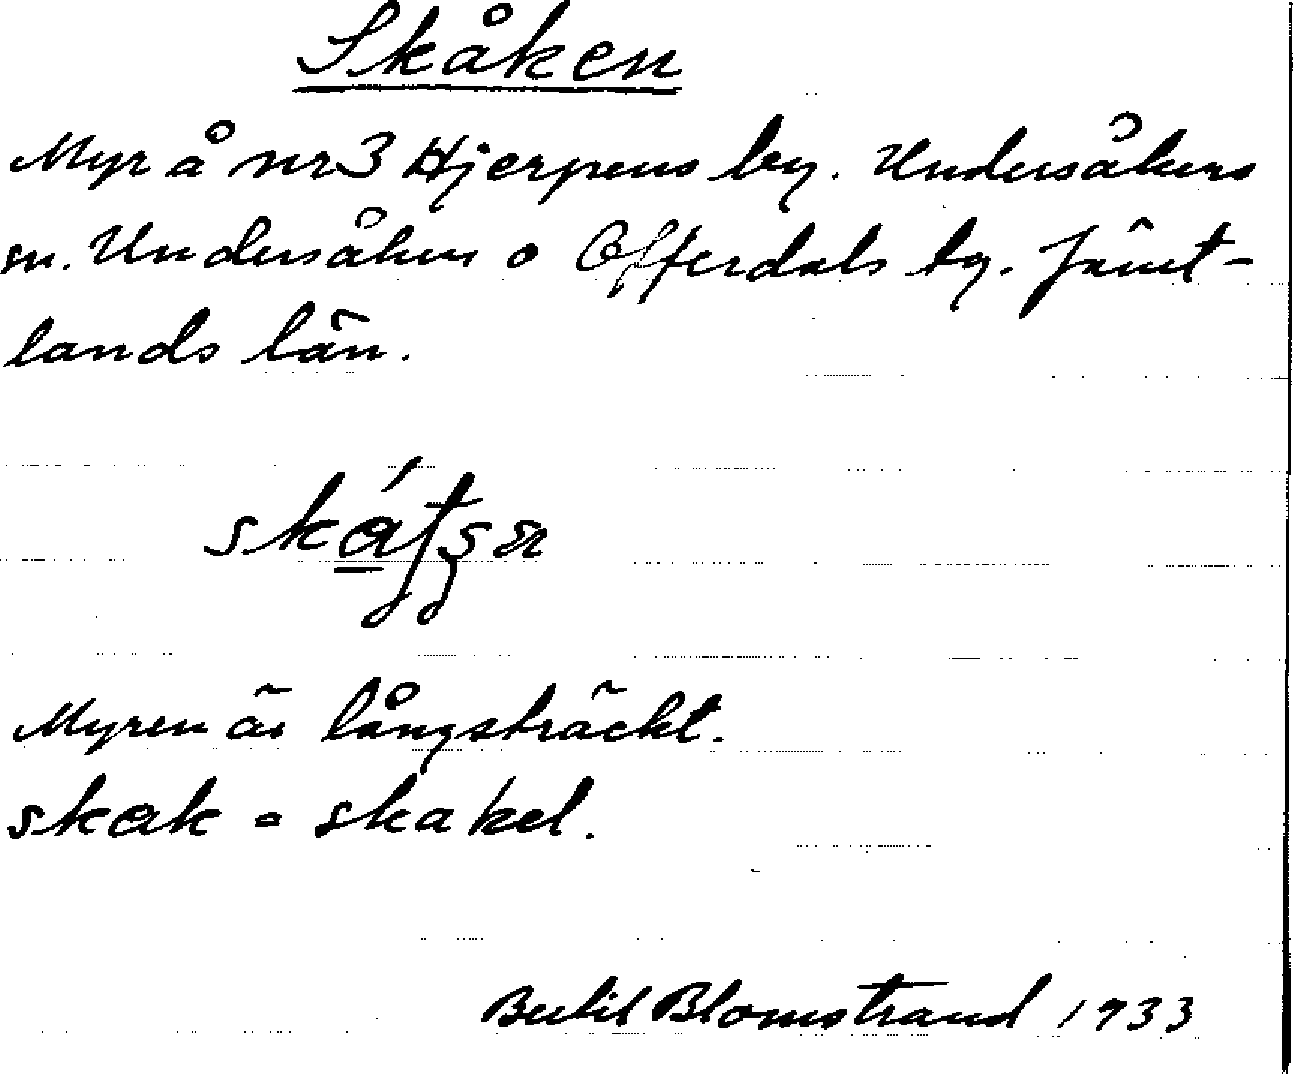 Skåken
Myr å nr 3 Hjerpens by. Undersåkers
sn. Undersåkers o Offerdals tg. Jämt-
lands län.
Myren är långsträckt.
skak = skakel.
Bertil Blomstrand 1933